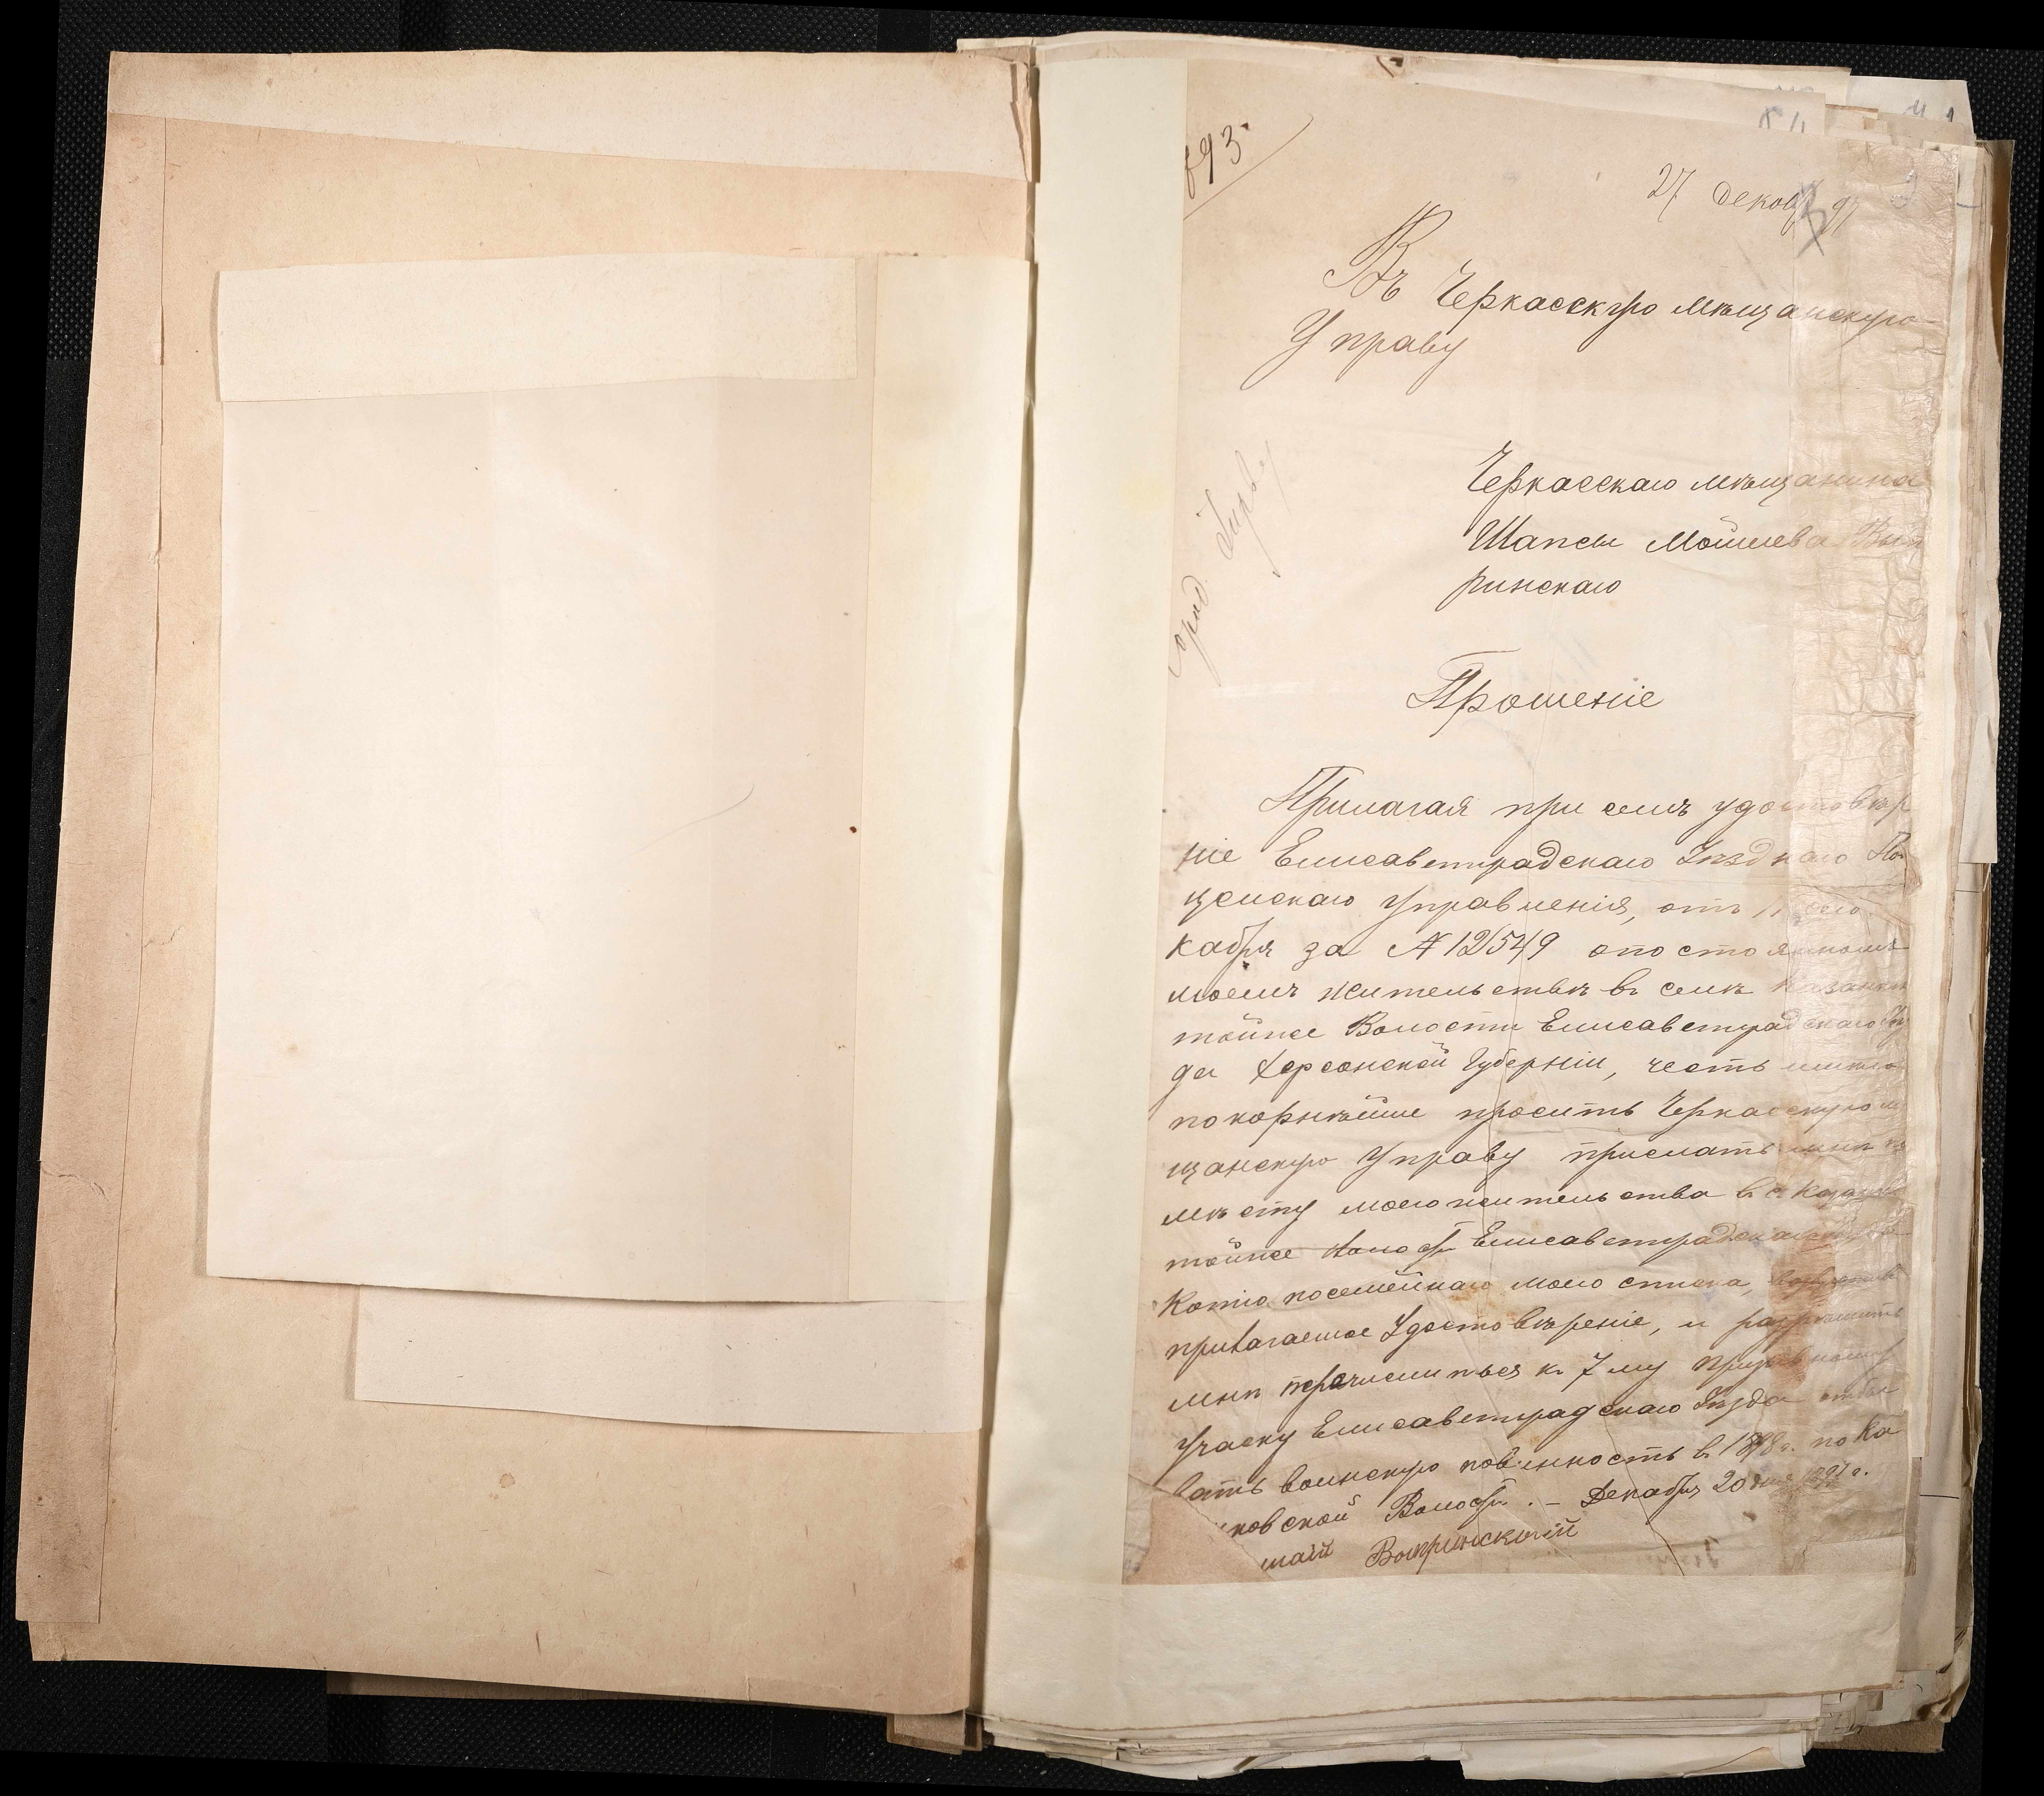 893.
27 Декаб 97
Въ Черкасскую мѣщанскую
Управу
Черкасскаго мѣщанина
Шапсы Мошиева
ринскаго
Прошеніе
Прилагая при семъ удостовѣр
ніе Елисаветградскаго Уѣзднаго По
цейскаго Управленія, отъ 11
кабря за № 12549 опостоянномъ
моемъ жительствѣ въ селѣ Казанкѣ
тойже Волости Елисаветградскаго Уѣз
да Херсонской Губерніи, честь имѣю
покорнѣйше просить Черкасскую мѣ
щанскую Управу прислать мнѣ по
мѣсту моего жительства в с.
тойже Волости Елисаветградскаго
Копію посемейнаго моего списка,
прилагаемое Удостовѣреніе, и разрѣшить
мнѣ перечислиться к 7 му Призывному
Учаску Елисаветградскаго Уѣзда отбы
вать воинскую повинность в 1898 г. по Ка
нковской Волости. – Декабря 20 дня 1897 г.